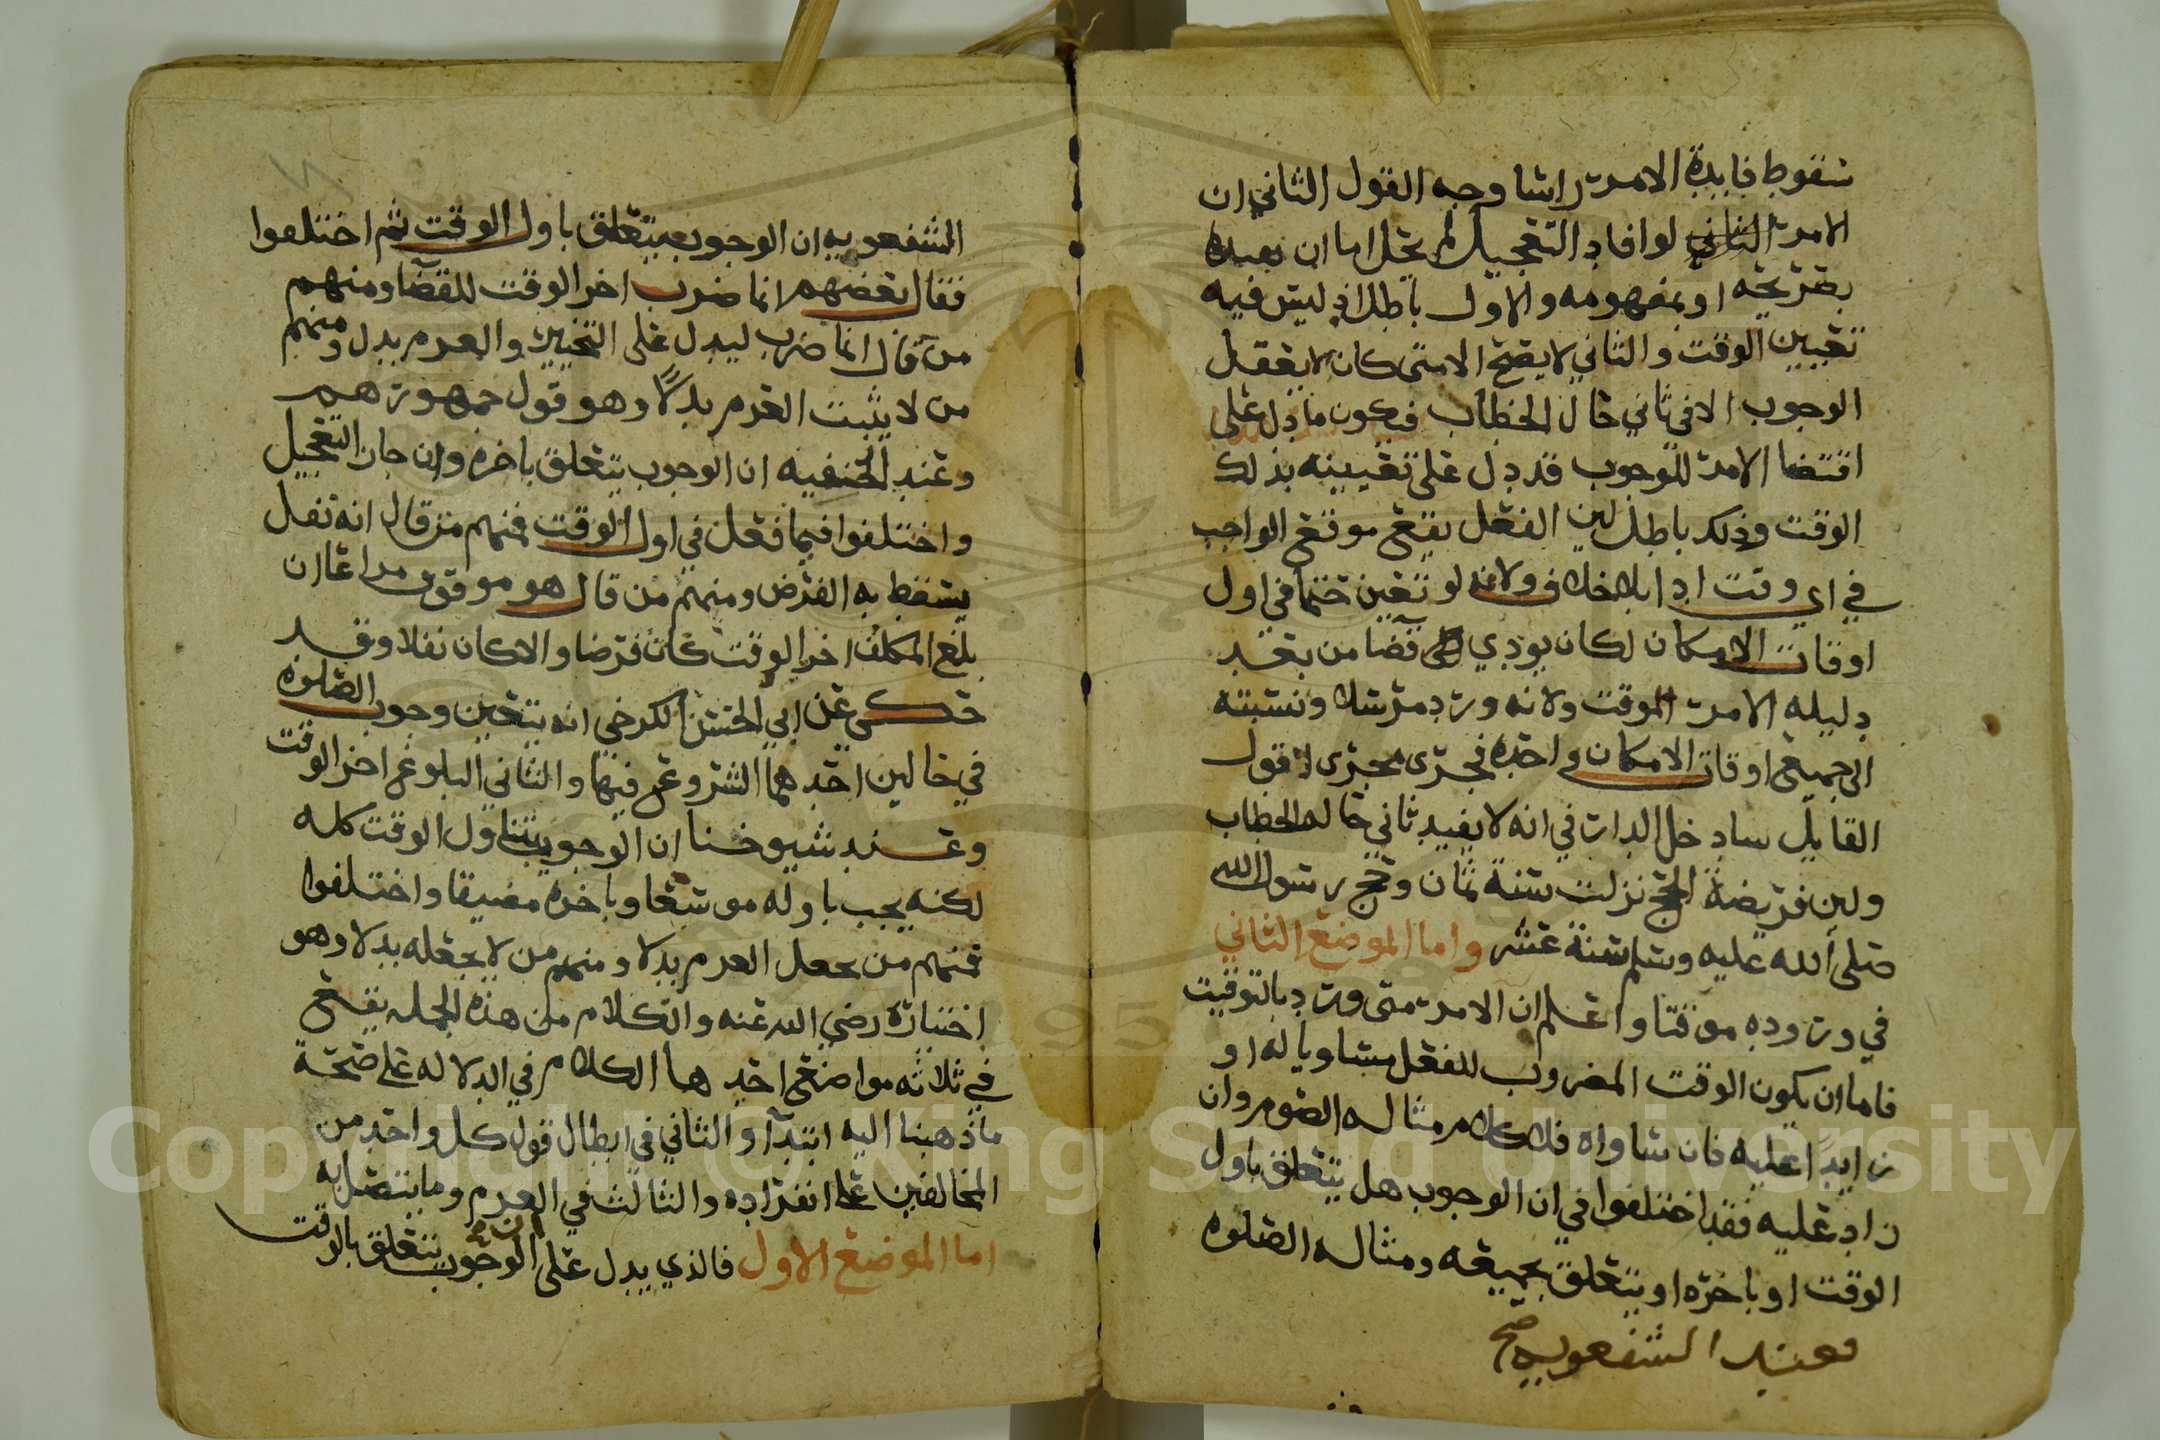 سقوط فايدة الامر راسا وجه القول الثاني ان
الامر لو افاد التعجيل لم يخل اما ان يفيده
بصريحه او بمفهومه والاول باطل اذ ليس فيه
تعيين الوقت والثاني لا يصح الا متى كان لا يعقل
الوجوب الا في ثاني حال الخطاب فيكون ما دل على
اقتضا الامر للوجوب قد دل على تعيينه بذلك
الوقت وذلك باطل لين الفعل يقع موقع الواجب
في اي وقت ادا بلا خلاف ولانه لو تعين حتما في اول
اوقات الامكان لكان يودي قضا من بعد
دليله الامر الموقت ولانه ورد مرسلا ونسبته
الى جميع اوقات الامكان واحده فجرى مجرى لا قول
القايل سادخل الدار في انه لا يفيد ثاني حاله الخطاب
ولين فريضة الحج نزلت سنة ثمان وحج رسول الله
صلى الله عليه وسلم سنة عشر واما الموضع الثاني
في وروده موقتا واعلم ان الامر متى ورد بالتوقيت
فاما ان يكون الوقت المضروب للفعل مساويا له او
زايدا عليه فان ساواه فلا كلام مثاله الصوم وان
زاد عليه فقد اختلفوا في ان الوجوب هل يتعلق باول
الوقت او باخره او يتعلق بجميعه ومثاله الصلوه
فعند الشفعويه صح
الشفعويه ان الوجوب يتعلق باول الوقت ثم اختلفوا
فقال بعضهم انما ضرب اخر الوقت للقضا ومنهم
من قال انما ضرب ليدل على التخيير والعزم بدل ومنهم
من لا يثبت العزم بدلا وهو قول جمهورهم
وعند الحنفيه ان الوجوب يتعلق باخره وان جاز التعجيل
واختلفوا فيما فعل في اول الوقت فمنهم من قال انه نفل
يسقط به الفرض ومنهم من قال هو موقوف مراعا ان
بلغ المكلف اخر الوقت كان فرضا والا كان نفلا وقد
حكى عن ابي الحسن الكرخي انه يتعين وجوب الصلوه
في حالين احدهما الشروع فيها والثاني البلوغ اخر الوقت
وعند شيوخنا ان الوجوب يتناول الوقت كله
لكنه يجب باوله موسعا وباخره مضيقا واختلفوا
فمنهم من يجعل العزم بدلا ومنهم من لا يجعله بدلا وهو
اختياره رضي الله عنه والكلام من هذه الجمله يقع
في ثلاثه مواضع احدها الكلام في الدلاله على صحة
ما ذهبنا اليه ابتدآ والثاني في ابطال قول كل واحد من
المخالفين على انفراده والثالث في العزم وما يتصل به
اما الموضع الاول فالذي يدل على ان الوجوب يتعلق بالوقت
Copyright © King Saud University